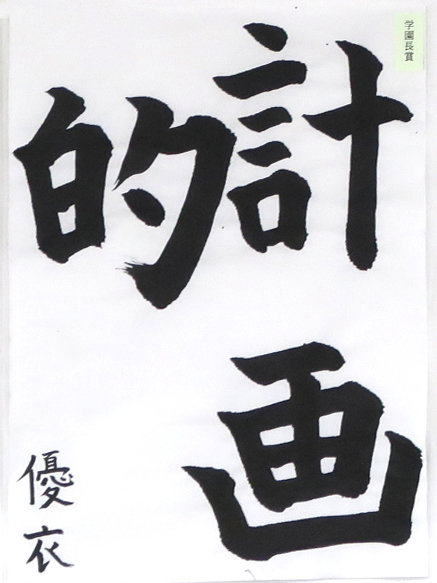 学園長賞
計画
的
優衣